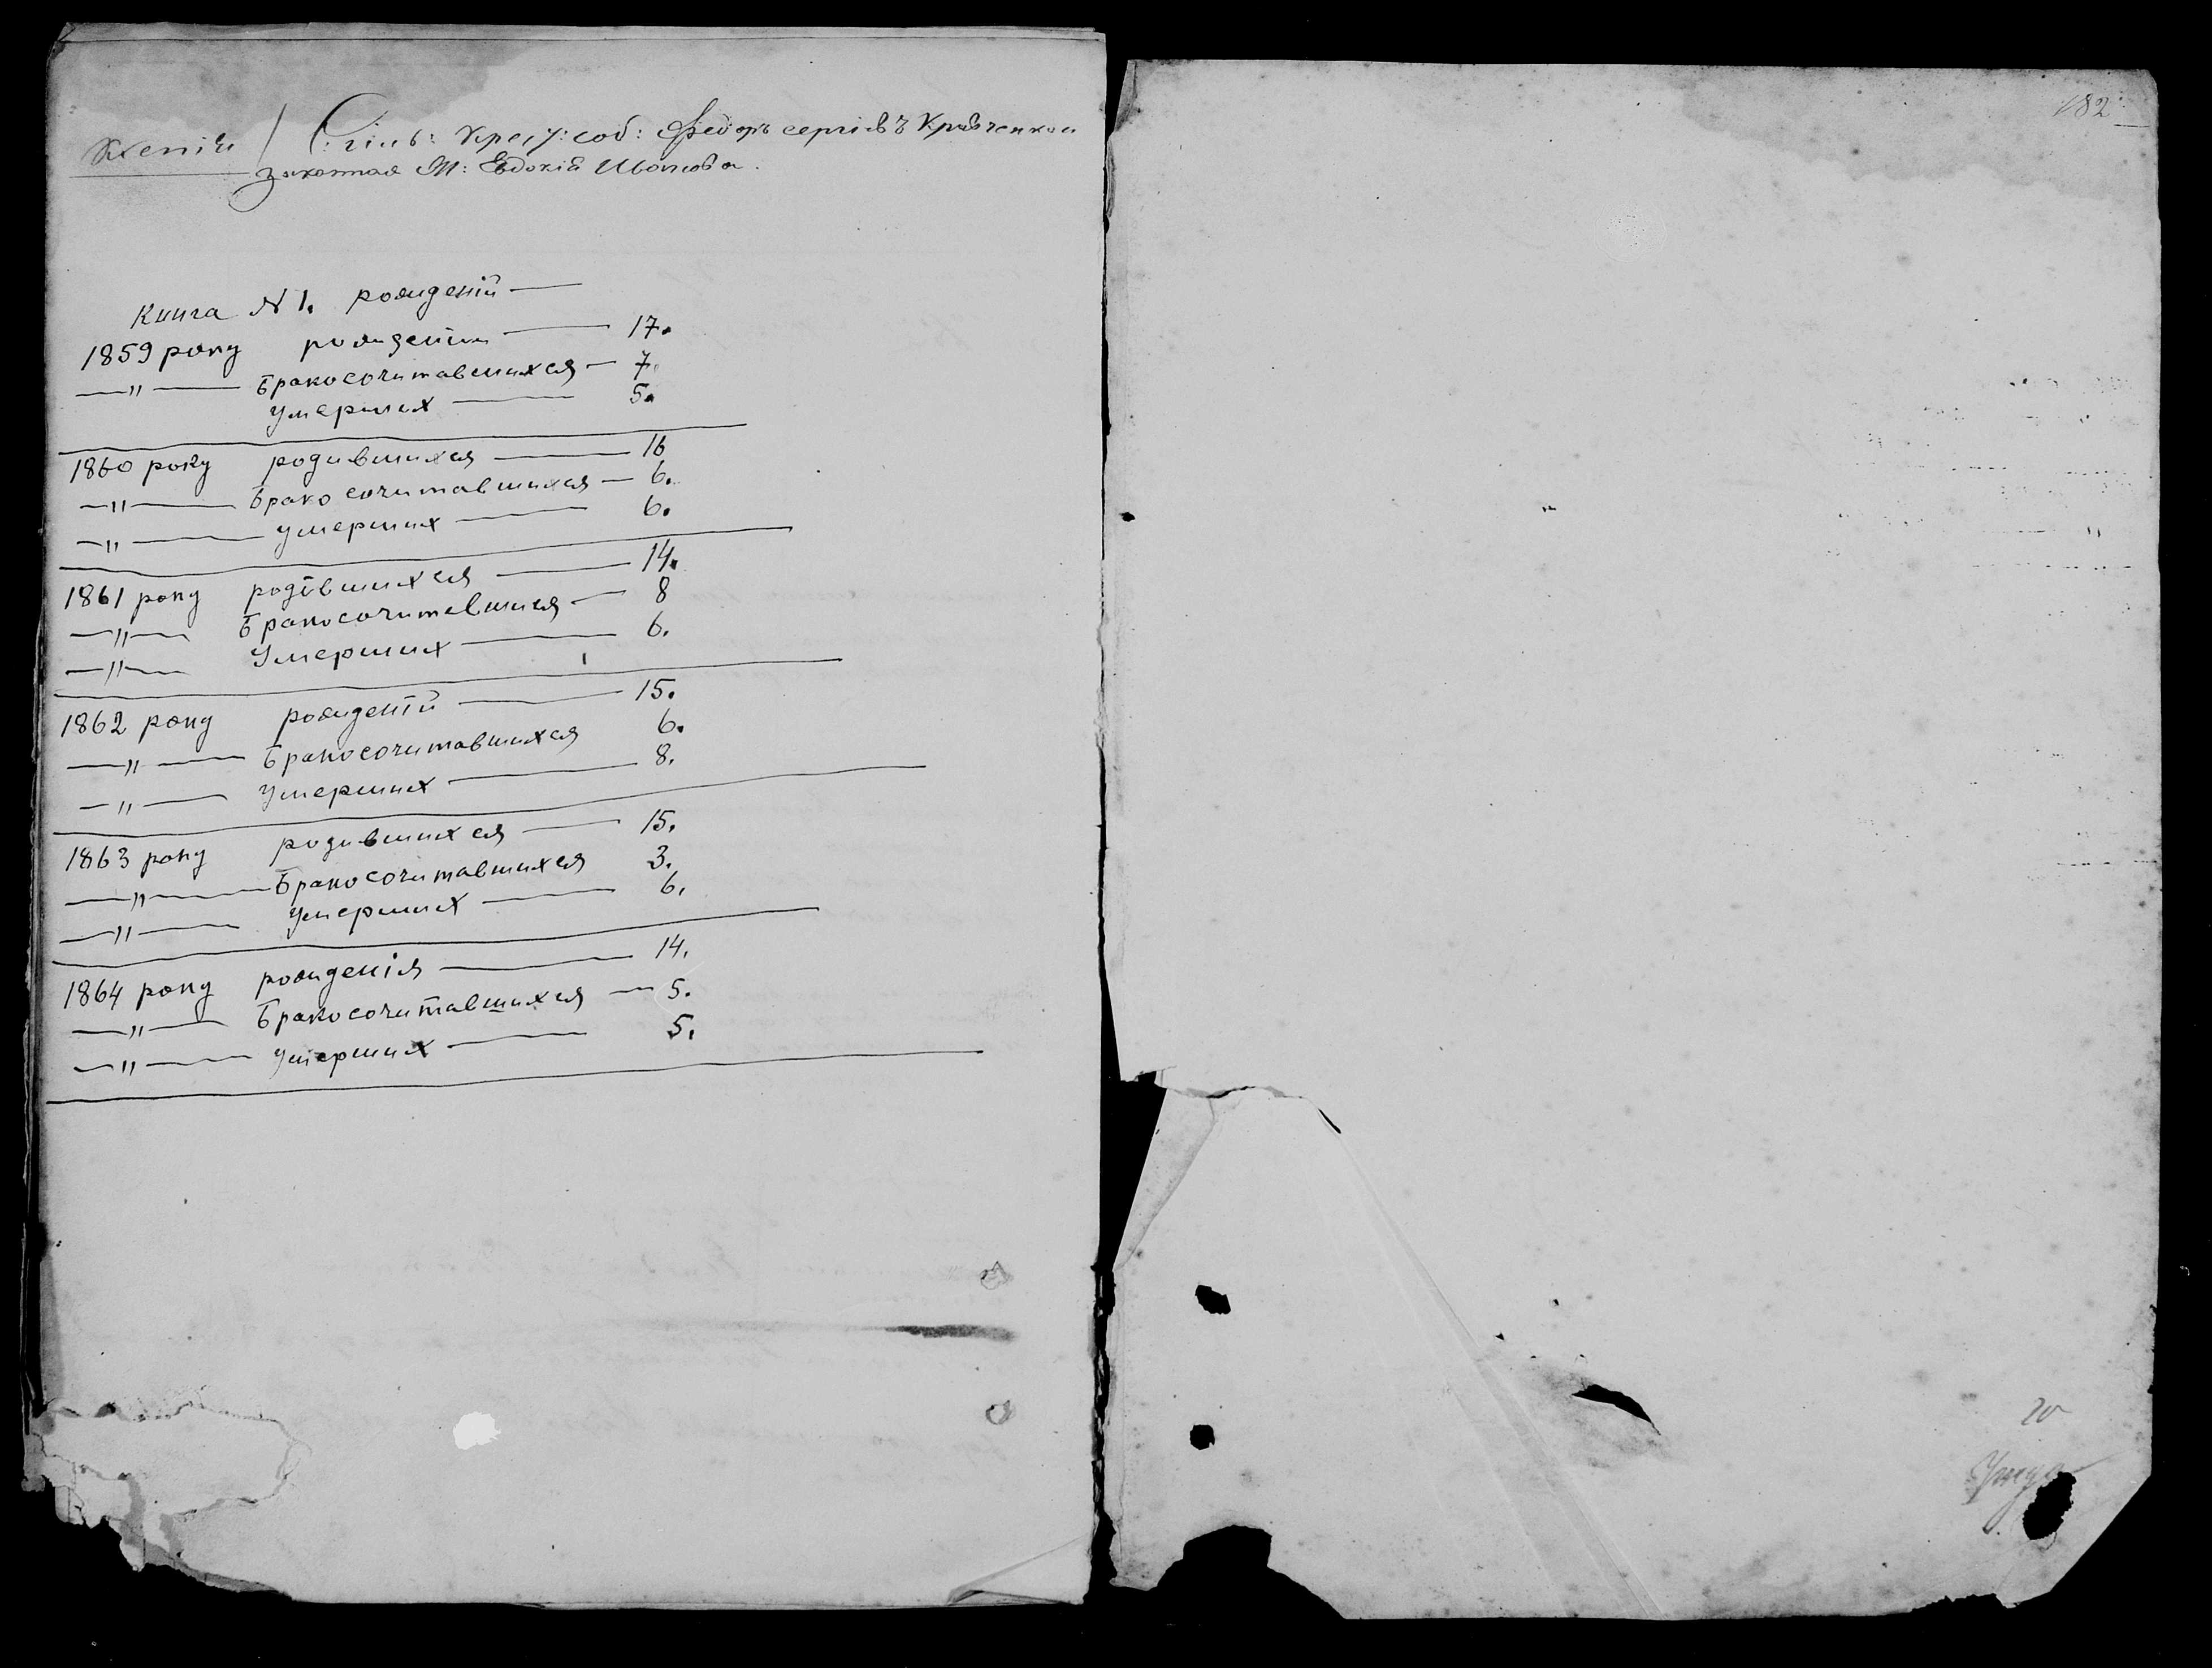 Ксенія / : Крес: соб: Федоръ Сергіевъ Кравченко и
законная М: Евдокія Иванова.
Книга N 1. рождений —
1859 року рождений — 17.
—"— Бракосочитавшихся — 7.
умерших — 5.
1860 року родившихся — 16
—"— Бракосочитавшихся — 6.
—"— умерших — 6.
1861 року родівшихся — 14.
—"— Бракосочитавшихся — 8
—"— Умерших — 6.
1862 року рожденій — 15.
—"— Бракосочитавшихся 6.
—"— умерших — 8.
1863 року родившихся — 15.
—"— Бракосочитавшихся 3.
—"— умерших — 6.
1864 року рожденія — 14.
—"— Бракосочитавшихся — 5.
—"— умерших — 5.
182